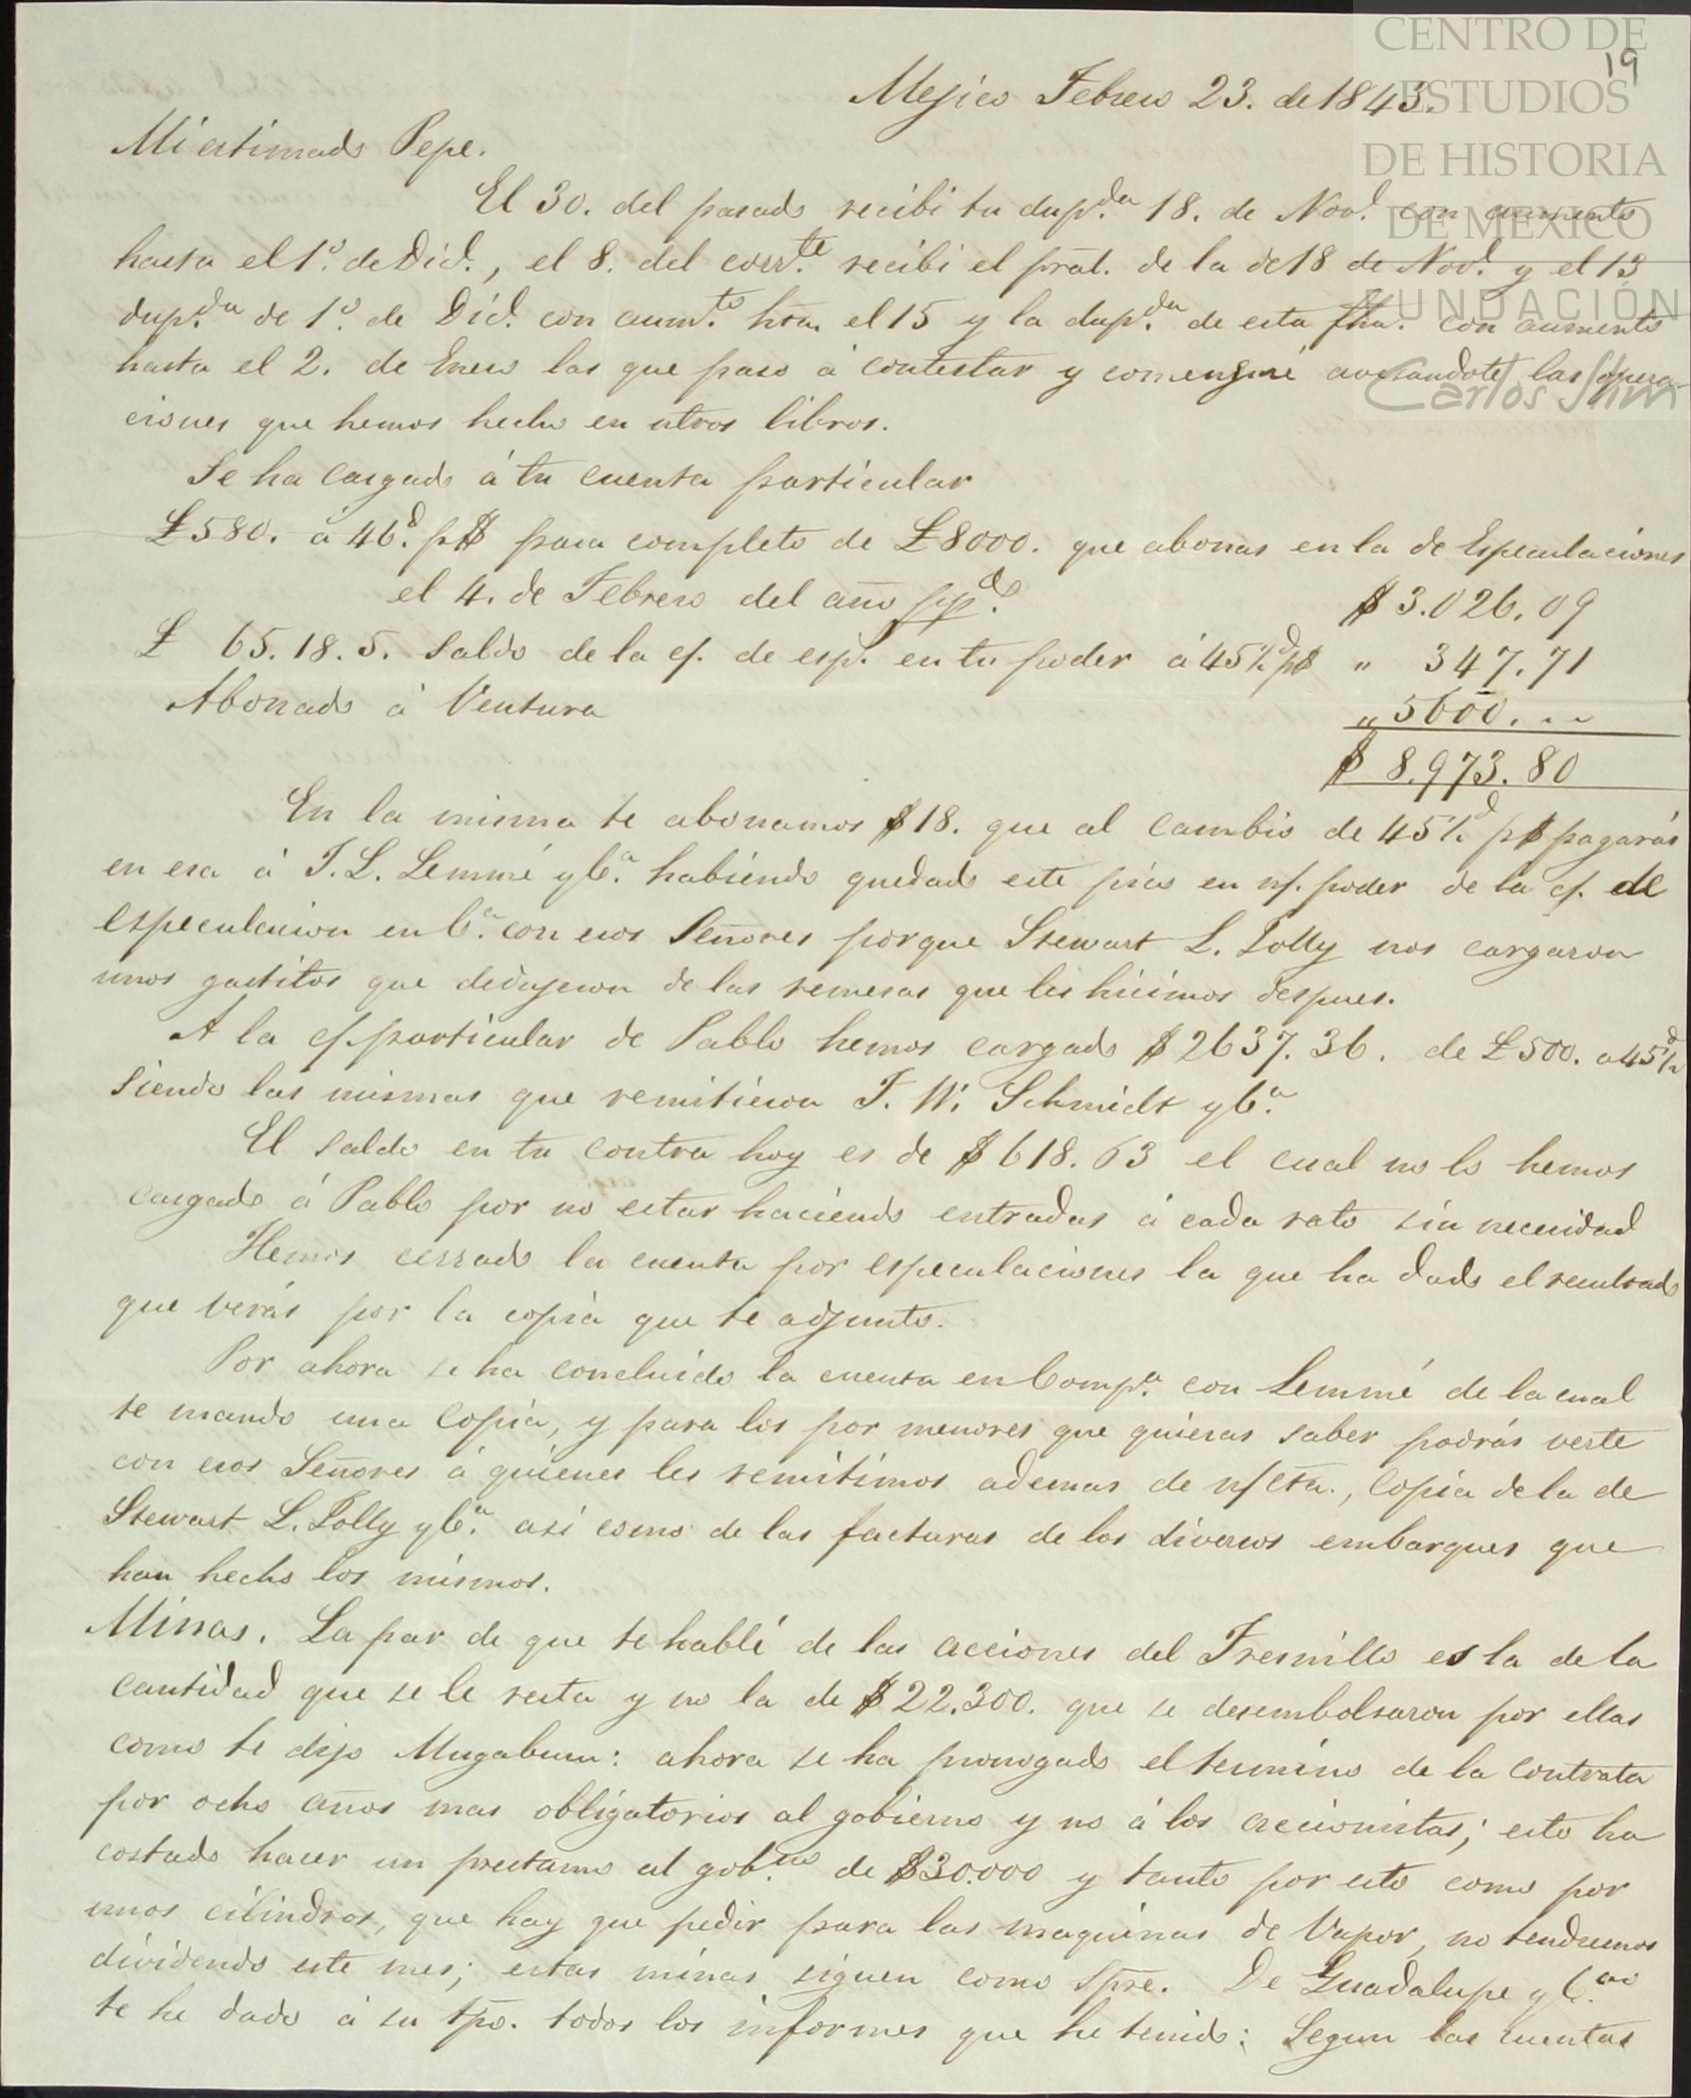 CENTRO DE
ESTUDIOS
DE HISTORIA
DE MEXICO
FUNDACIÓN
Carlos Slim
19
Mejico Febrero 23. de 1843.
Mi estimado Pepe.
El 30. del pasado recibi tu dup.da 18. de Nov.e con aumento
hasta el 1.o de Dic.e, el 8. del corr.te recibi el pral. de la de 18 de Nov.e y el 13
dup.da de 1.o de Dic.e con aum.to hta. el 15 y la dup.da de esta fha. con aumento
hasta el 2. de Enero las que paso á contestar y comenzaré avisandote las opera-
ciones que hemos hecho en ntros libros.
Se ha cargado á tu cuenta particular
£580. á 46.d p$ para completo de £8000. que abonas en la de Especulaciones
el 4. de Febrero del año pp.do $ 3.026.09
£ 65.18.5. Saldo de la c/. de esp. en tu poder á 45½d p$ " 347.71
Abonado á Ventura " 5600. ..
$ 8.973.80
En la misma te abonamos $18. que al cambio de 45½d p$ pagarás
en esa á F. L. Lemmé y C.a habiendo quedado este pico en n/. poder de la c/. de
especulacion en C.a con esos Señores porque Stewart L. Jolly nos cargaron
unos gastitos que dedujeron de las remesas que les hicimos despues.
A la c/. particular de Pablo hemos cargado $2637.36. de £500. a 45½d
siendo las mismas que remitieron F. W. Schmidt y C.a
El saldo en tu contra hoy es de $618.63 el cual no lo hemos
cargado á Pablo por no estar haciendo entradas á cada rato sin necesidad
Hemos cerrado la cuenta por especulaciones la que ha dado el resultado
que verás por la copia que te adjunto.
Por ahora se ha concluido la cuenta en Comp.a con Lemmé de la cual
te mando una Copia, y para los por menores que quieras saber podrás verte
con esos Señores á quienes les remitimos ademas de n/ cta., Copia de la de
Stewart L. Jolly y C.a asi como de las facturas de los diversos embarques que
han hecho los mismos.
Minas. La par de que te hablé de las acciones del Fresnillo es la de la
cantidad que se le resta y no la de $22.300. que se desembolsaron por ellas
como te dijo Mugaburu: ahora se ha prorogado el termino de la contrata
por ocho años mas obligatorios al gobierno y no á los accionistas; esto ha
costado hacer un prestamo al gob.no de $30.000 y tanto por esto como por
unos cilindros, que hay que pedir para las maquinas de Vapor, no tendremos
dividendo este mes; estas minas siguen como spre. De Guadalupe y C.
te he dado á su tpo. todos los informes que he tenido: Segun las cuentas